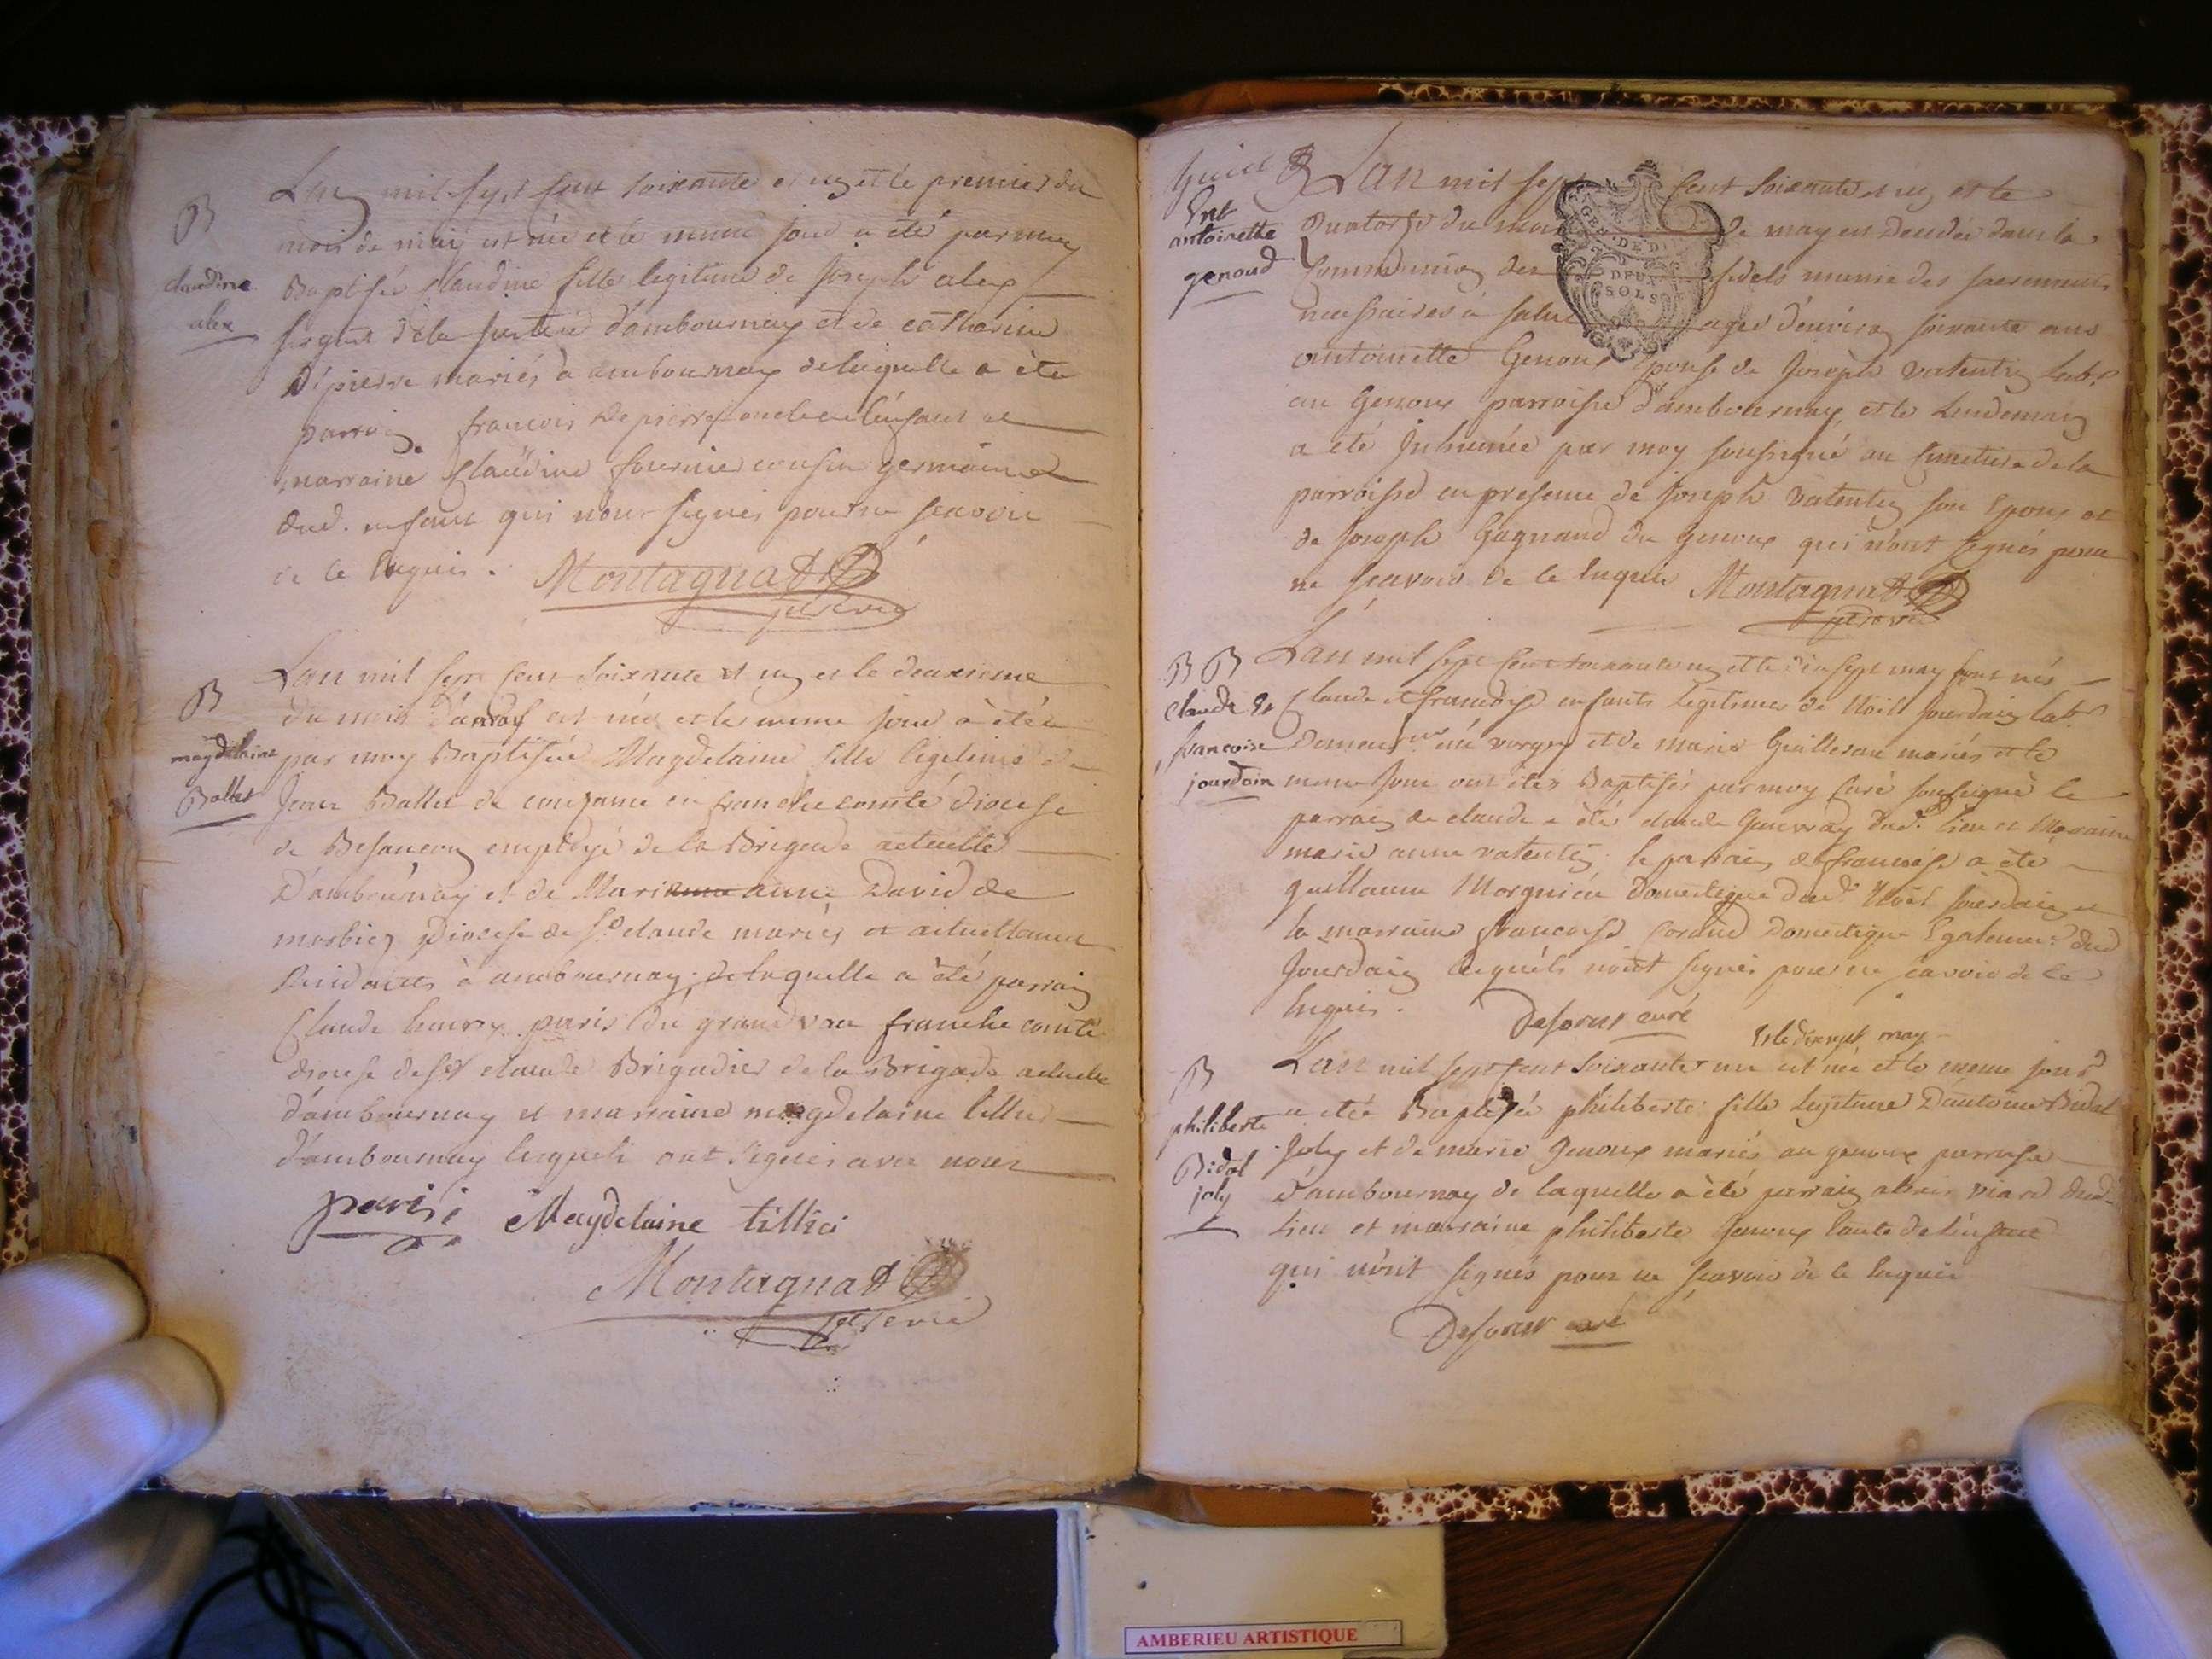 Lan mil sept cent soixante et un et le premier du
mois de may est née et le meme jour a été par moy
B
claudine
alex
Baptisée Claudine fille legitime de Joseph alex
sergent de la justice d'ambournay et de catharine
Dépierre mariés à ambournay de laquelle a été
parrain francois Depierre oncle de l'enfant et
marraine Claudine fournier cousine germaine
dud. enfant qui n'ont signés pour ne scavoir
de ce Enquis. Montagnat
Lan mil sept cent soixante et un et le deuxieme
du mois est née et le meme jour a étée
B
magdelaine
Ballet
par moy Baptisée Magdelaine fille legitime de
Jean Ballet de couzance en franche comté diocese
de Besancon employé de la Brigade actuelle
D'ambournay et de Marianne anne David de
morbier Diocese de St claude mariés et actuellement
Residants à ambournay de laquelle a été parrain
Claude henry paris du grandvau franche comté
diocese de St claude Brigadier de la Brigade actuelle
d'ambournay et marraine magdelaine
d'ambournay lesquels ont signés avec nous
paris Magdelaine tillier
Montagnat
Ent
antoinette
genoud
Lan mil sept cent soixante et un et le
Quatorze du mois de may est decedée dans la
Communion des fidels munie des sacrements
necessaires à salut agée d'environ soixante ans
GEN. DE D
DEUX
SOLS
antoinette Genoux Epouse de Joseph valentin labr
au Genoux parroisse d'ambournay et le lendemain
a été Inhumée par moy soussigné au cimetiere de la
parroisse en presence de Joseph valentin son Epoux et
de Joseph Gagnaud du Genoux qui n'ont signés pour
ne scavoir de ce Enquis Montagnat
B B
claude et
francoise
jourdain
Lan mil sept cent soixante un et le dixsept may sont nés
Claude et francoise enfants legitimes de Noël jourdain labr
Demeurt au verger et de marie Guilleran mariés et le
meme jour ont étés Baptisés par moy curé soussigné le
parrain de claude a été claude dud. lieu et Maraine
marie anne valentin le parrain de francoise a été
guillaume Morgnieu domestique dud. Noël jourdain et
la marraine francoise domestique Egalement dud
Jourdain lesquels n'ont signés pour ne scavoir de ce
Enquis. curé
Et le dixsept may
B
philiberte
Bidal
joly
Lan mil sept cent soixante un est née et le meme jour
a étée Baptisée philiberte fille legitime D'antoine Bidal
Joly et de marie Genoux mariés au genoux parroisse
d'ambournay de laquelle a été parrain viard dud.
lieu et marraine philiberte Genoux tante de l'enfant
qui n'ont signés pour ne scavoir de ce Enquis
curé
AMBERIEU ARTISTIQUE